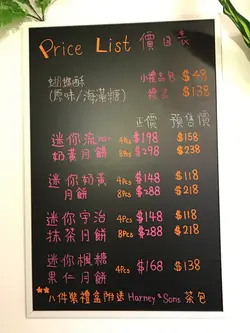 Price List 價目表
蝴蝶酥 小禮品包 $48
(原味/海藻糖) 禮盒 $138
正價 預售價
迷你流心 4Pcs $198 $158
奶黃月餅 8Pcs $298 $238
迷你奶黃 4Pcs $148 $118
月餅 8Pcs $288 $218
迷你宇治 4Pcs $148 $118
抹茶月餅 8Pcs $288 $218
迷你楓糖 4Pcs $168 $138
果仁月餅
八件裝禮盒附送 Harney & Sons 茶包